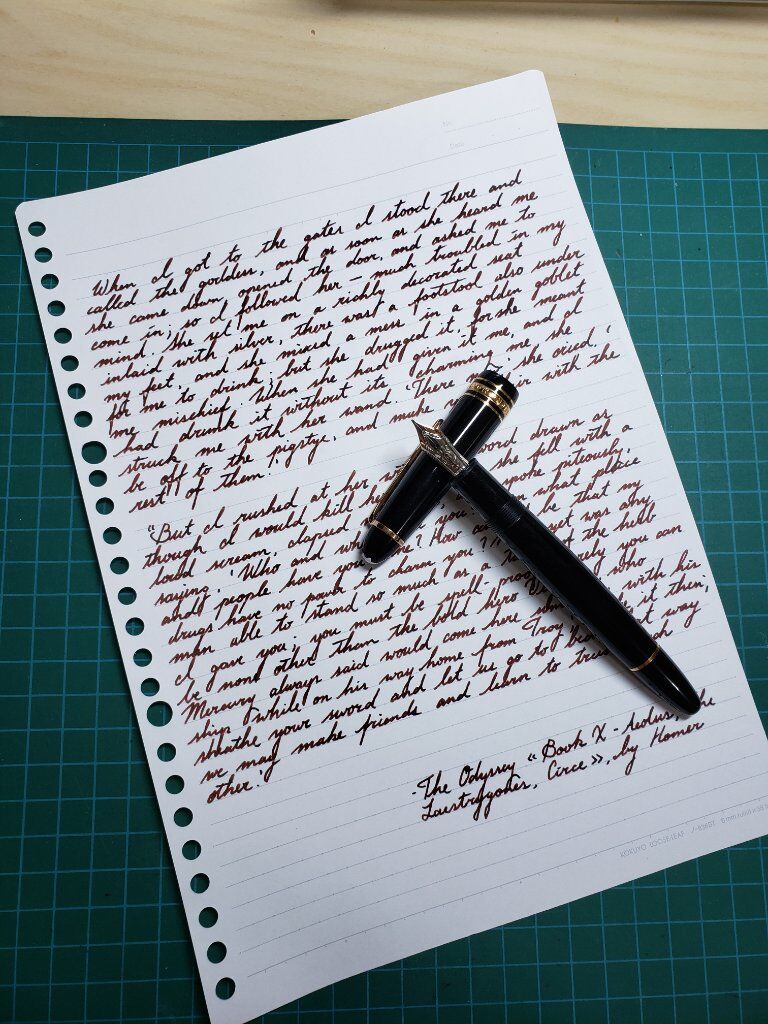 No.
Date
When I got to the gates I stood there and
called the goddess, and as soon as she heard me
she came down, opened the door, and asked me to
come in; so I followed her — much troubled in my
mind. She set me on a richly decorated seat
inlaid with silver, there wast a footstool also under
my feet, and she mixed a mess in a golden goblet
for me to drink; but she drugged it, for she meant
me mischief. When she had given it me, and I
had drunk it without its charming me, she
struck me with her wand. 'There she cried, '
be off to the pigstye, and make with the
rest of them.'
"But I rushed at her word drawn as
though I would kill he she fell with a
loud scream, clasped spoke piteously,
saying, 'Who and wh you? what place
and people have you me? How be that my
drugs have no power to charm you? set was any
man able to stand so much as a t the herb
I gave you; you must be spell-proof rely you can
be none other than the bold hero who
Mercury always said would come here with his
ship while on his way home from Troy; it then;
sheathe your sword and let us go to be t way
we may make friends and learn to trust
other.'
-The Odyssey « Book X - Aeolus, the
Laestrygones, Circe », by Homer
KOKUYO LOOSE-LEAF